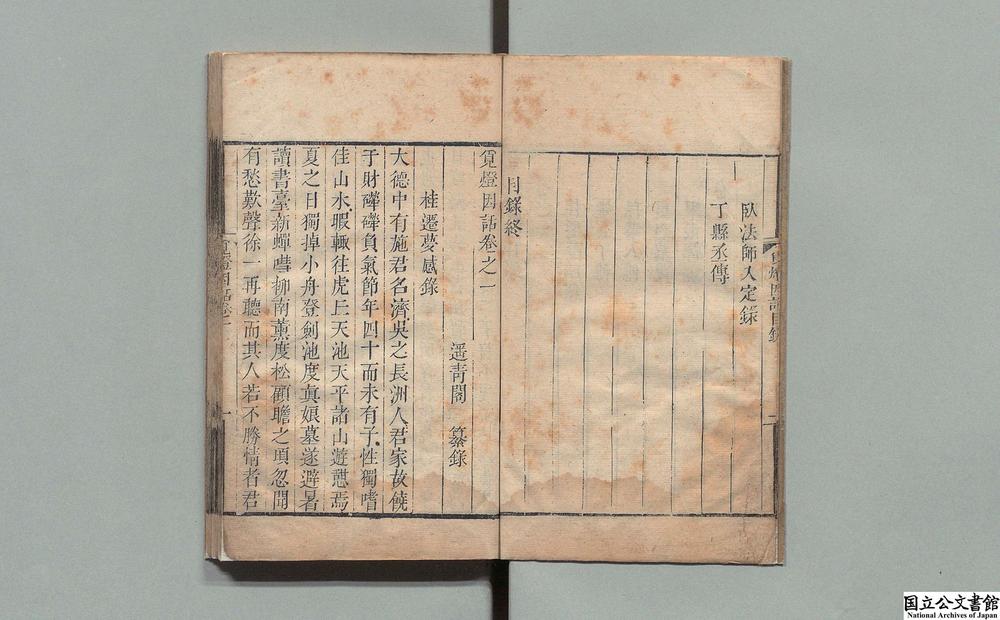 臥法師入定錄
丁縣丞傳
目錄終
覓燈因話卷之一
遥青閣　纂錄
桂遷夢感錄
大德中有施君名濟吳之長洲人君家故饒
于財磷磷負氣節年四十而未有子性獨嗜
佳山水暇輒往虎丘天池天平諸山遊憇焉
夏之日獨掉小舟登劍池度真娘墓遂避暑
讀書臺新蟬噪柳南薫度松顧瞻之頃忽聞
有愁歎聲徐一再聽而其人若不勝情者君
国立公文書館
National Archives of Japan